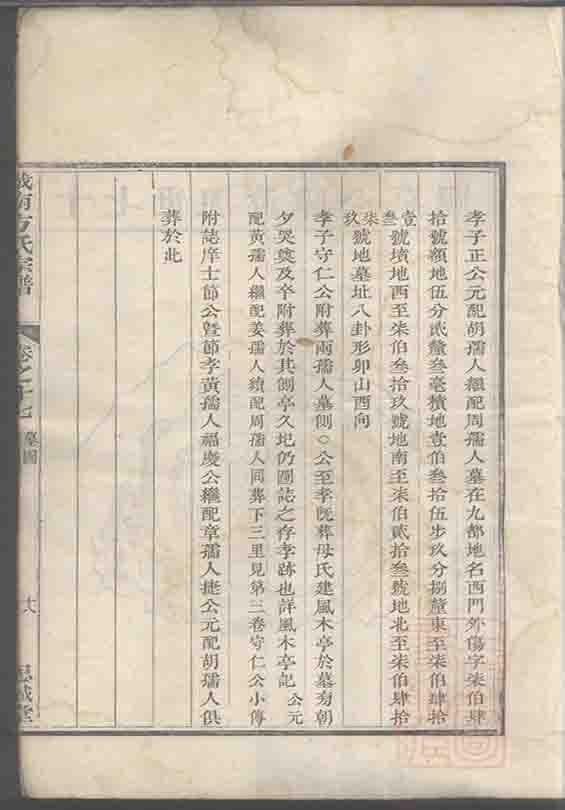 孝子正公元配胡孺人繼配周孺人墓在九都地名西門外傷字柒伯肆
拾號額地伍分貳釐叁毫積地壹伯叁拾伍步玖分捌釐東至柒伯肆拾
叁號墳地西至柒伯叁拾玖號地南至柒伯貳拾叁號地北至柒伯肆拾
壹柒玖號地墓址八卦形卯山酉向
孝子守仁公附葬兩孺人墓側○公至孝旣葬母氏建風木亭於墓旁朝
夕哭奠及卒附葬於其側亭久圮仍圖誌之存孝跡也詳風木亭記 公元
配黃孺人繼配姜孺人續配周孺人同葬下三里見第三卷守仁公小傳
附誌庠士節公曁節孝黃孺人福慶公繼配章孺人捷公元配胡孺人俱
葬於此
方氏宗譜
卷之十七 墓圖
思誠堂